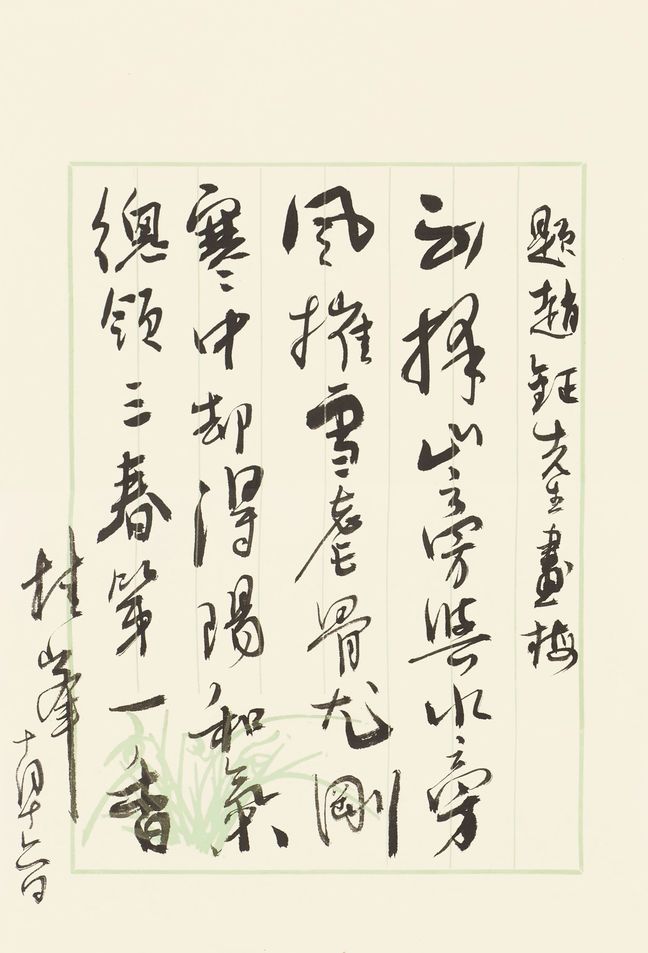 題趙鉦先生畫梅
不擇山旁與水旁
風摧雪虐骨尤剛
寒中却得陽和氣
總領三春第一香
桂峯
十月十六日